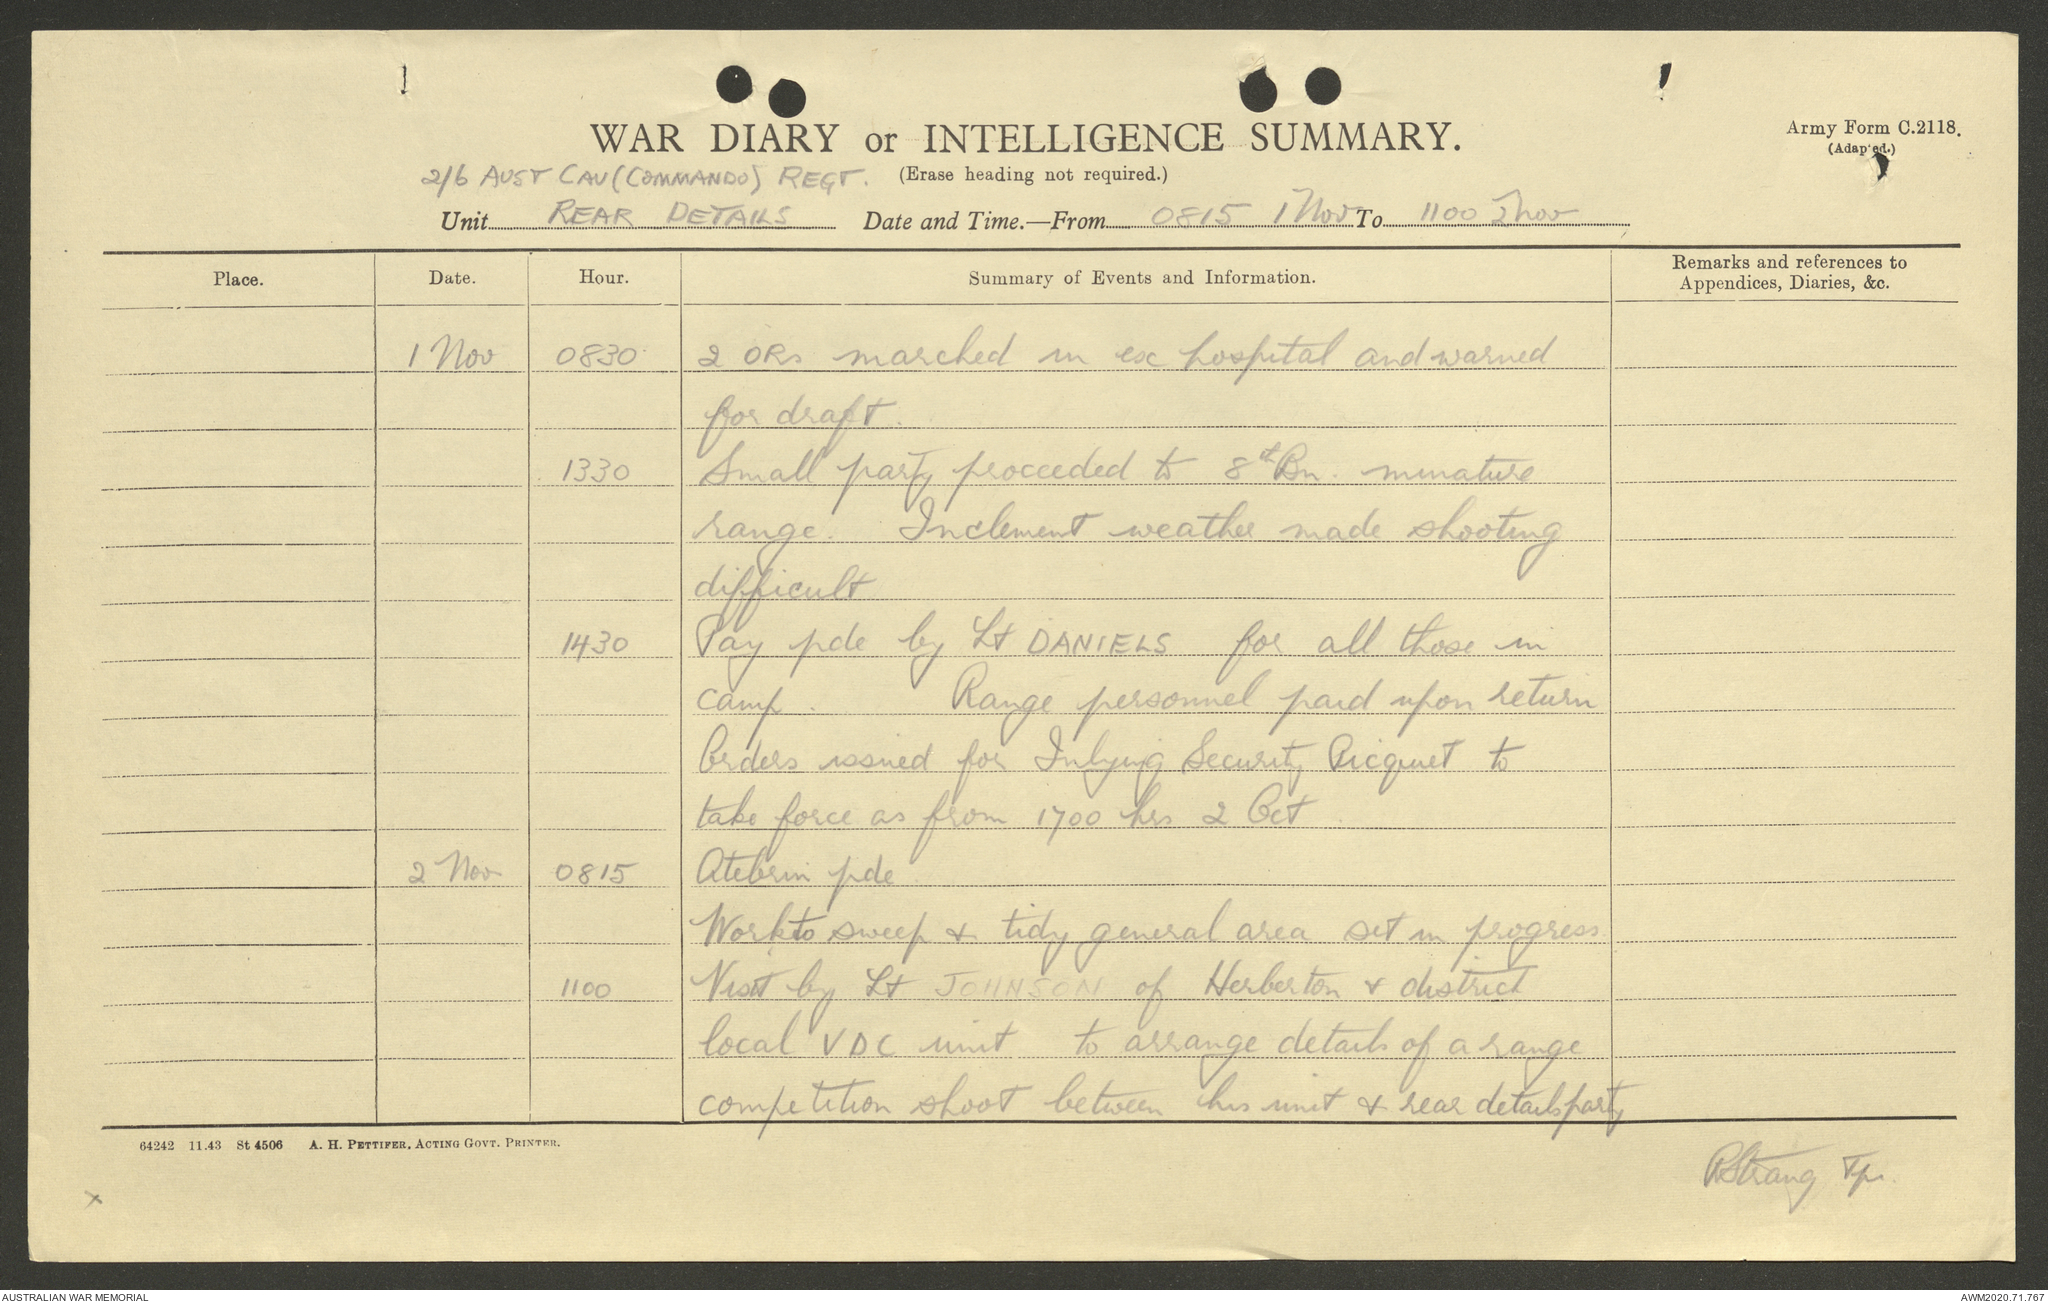 WAR DIARY or INTELLIGENCE SUMMARY.
Army Form C.2118.
(Adapted.)
2/6 AUST CAV (COMMANDO) REGT. (Erase heading not required.)
Unit REAR DETAILS Date and Time.—From 0815 1 Nov To 1100 2 Nov
Place. Date. Hour. Summary of Events and Information. Remarks and references to Appendices, Diaries, &c.
1 Nov 0830 2 ORs marched in esc hospital and warned
for draft.
1330 Small party proceeded to 8th Bn. minature
range. Inclement weather made shooting
difficult
1430 Pay pde by Lt DANIELS for all those in
camp. Range personnel paid upon return
Orders issued for Inlying Security Picquet to
take force as from 1700 hrs 2 Oct
2 Nov 0815 Atebrin pde
Work to sweep & tidy general area set in progress
1100 Visit by Lt JOHNSON of Herberton & district
local VDC unit to arrange details of a range
competition shoot between his unit & rear details party
64242 11.43 St 4506 A. H. PETTIFER, ACTING GOVT. PRINTER.
RStrang Tpr.
x
AUSTRALIAN WAR MEMORIAL
AWM2020.71.767